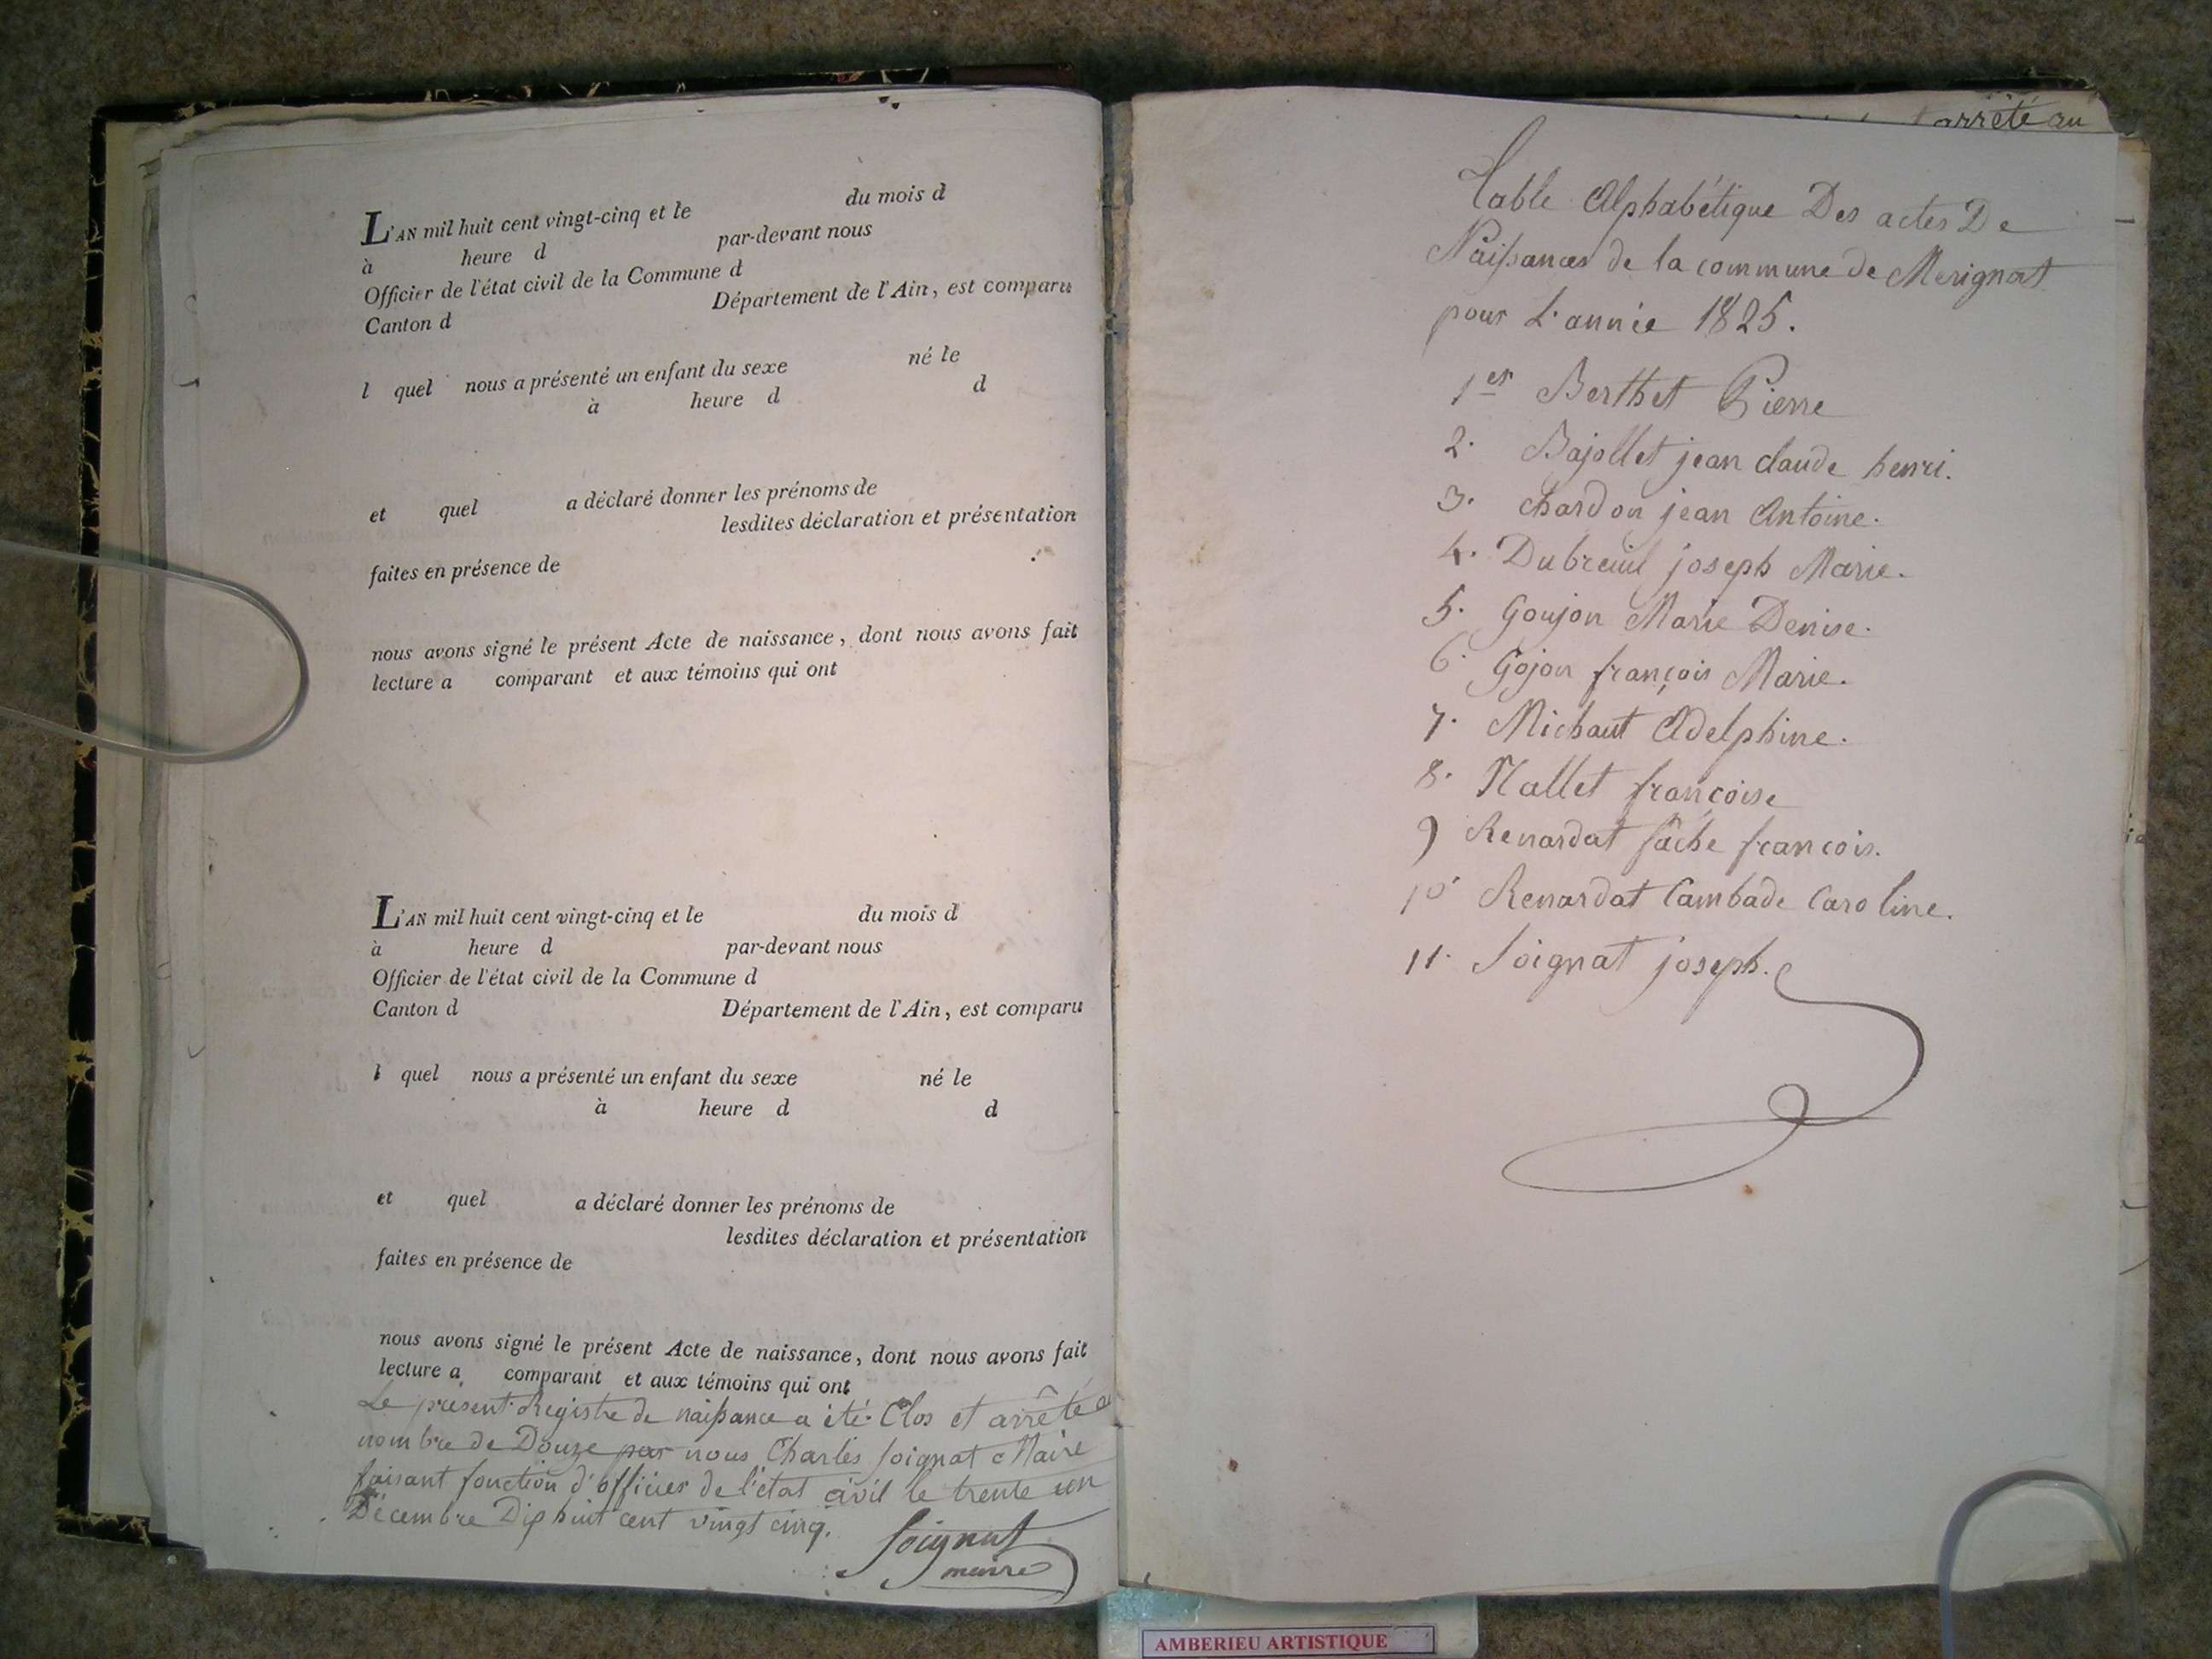 L'AN mil huit cent vingt-cinq et le du mois d
à heure d par-devant nous
Officier de l'état civil de la Commune d
Canton d Département de l'Ain, est comparu
l quel nous a présenté un enfant du sexe né le
à heure d d
et quel a déclaré donner les prénoms de
lesdites déclaration et présentation
faites en présence de
nous avons signé le présent Acte de naissance, dont nous avons fait
lecture a comparant et aux témoins qui ont
L'AN mil huit cent vingt-cinq et le du mois d
à heure d par-devant nous
Officier de l'état civil de la Commune d
Canton d Département de l'Ain, est comparu
l quel nous a présenté un enfant du sexe né le
à heure d d
et quel a déclaré donner les prénoms de
lesdites déclaration et présentation
faites en présence de
nous avons signé le présent Acte de naissance, dont nous avons fait
lecture a comparant et aux témoins qui ont
Le présent Registre de naissance a été Clos et arrêté a
nombre de Douze par nous Charles Soignat Maire
faisant fonction d'officier de l'état civil le trente un
Décembre Dix huit cent vingt cinq.
Soignat
maire
arrêté au
Table Alphabétique Des actes De
Naissances de la commune de Merignat
pour L'année 1825.
1er Berthet Pierre
2. Bajollet jean claude henri.
3. chardon jean Antoine.
4. Dubreuil joseph Marie.
5. Goujon Marie Denise.
6. Gojon françois Marie.
7. Michaut Adelphine.
8. Nallet françoise
9 Renardat fâche francois.
10 Renardat Cambade Caroline.
11. Soignat joseph.
AMBERIEU ARTISTIQUE